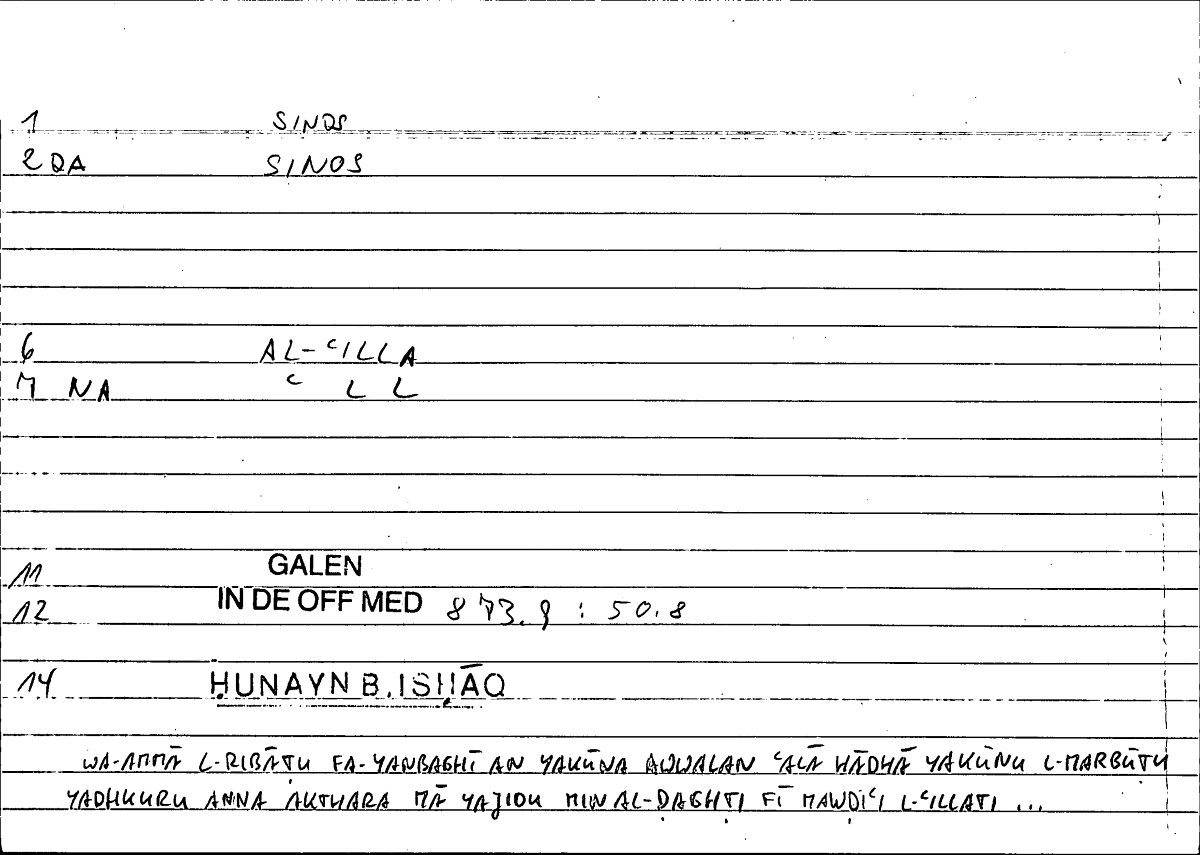 1 SINOS
2 QA SINOS
6 AL-ʿILLA
7 NA ʿ L L
11 GALEN
12 IN DE OFF MED 873.9 : 50.8
14 ḤUNAYN B. ISḤĀQ
WA-AMMĀ L-RIBĀṬU FA-YANBAGHĪ AN YAKŪNA AWWALAN ʿALĀ HĀDHĀ YAKŪNU L-MARBŪṬU
YADHKURU ANNA AKTHARA MĀ YAJIDU MIN AL-ḌAGHṬI FĪ MAWḌIʿI L-ʿILLATI ...